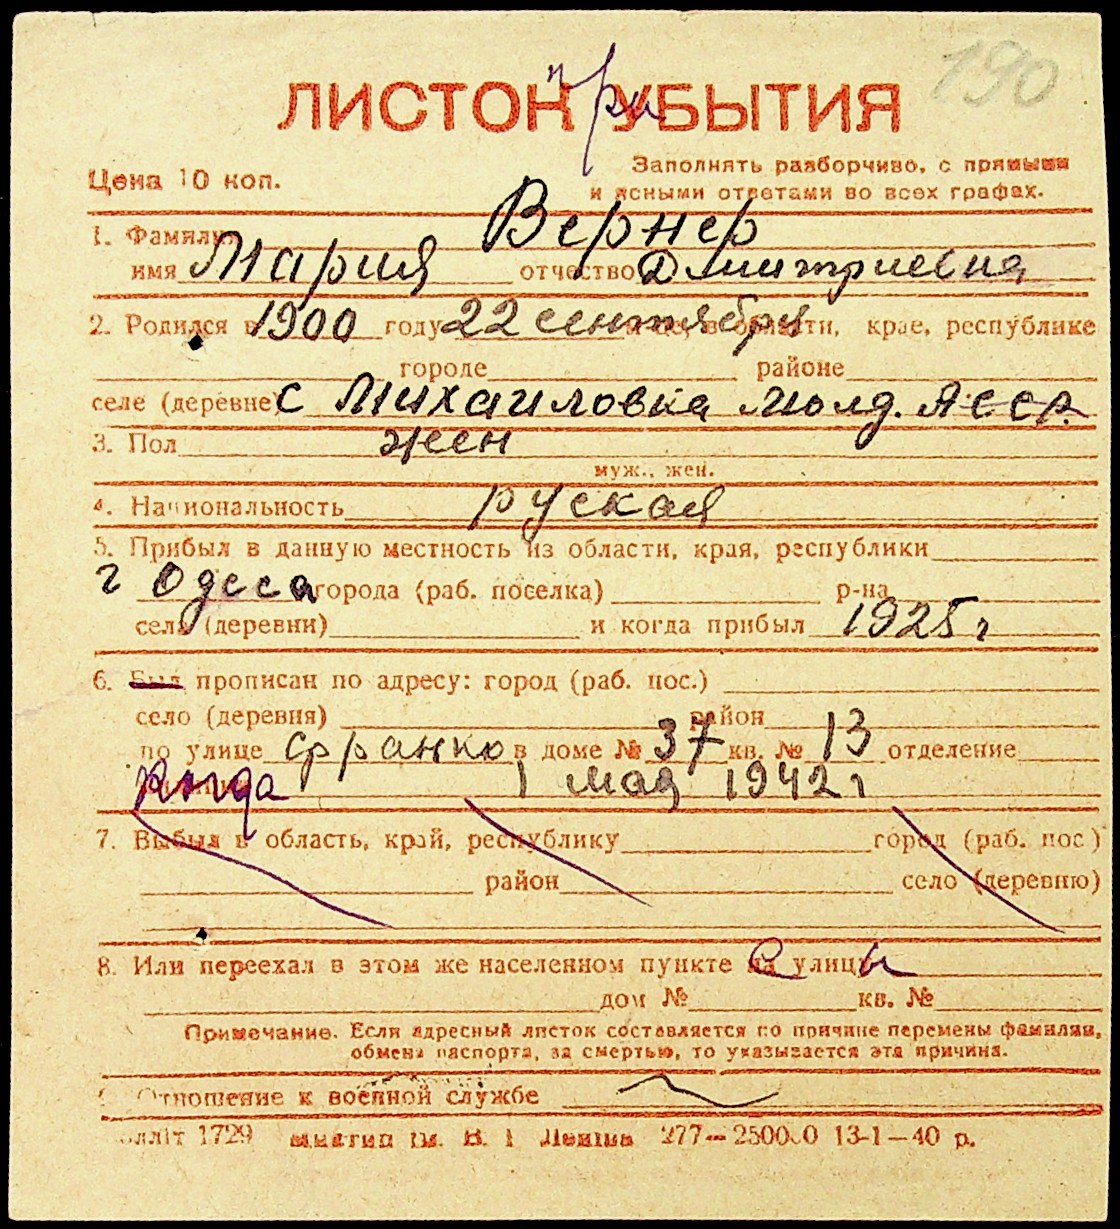 190
ЛИСТОК при УБЫТИЯ
Цена 10 коп.
Заполнять разборчиво, с прямыми
и ясными ответами во всех графах.
1. Фамилия Вернер
имя Мария отчество Дмитриевна
2. Родился в 1900 году 22 сентября области, крае, республике
городе районе
селе (деревне) с Михаиловка Молд. АССР.
3. Пол жен
муж., жен.
4. Национальность руская
5. Прибыл в данную местность из области, края, республики
г Одесса города (раб. поселка) р-на
села (деревни) и когда прибыл 1925 г
6. Был прописан по адресу: город (раб. пос.)
село (деревня) район
по улице Франко в доме № 37 кв. № 13 отделение
Когда 1 мая 1942 г
7. Выбыл в область, край, республику город (раб. пос.)
район село (деревню)
8. Или переехал в этом же населенном пункте с улицы
дом № кв. №
Примечание. Если адресный листок составляется по причине перемены фамилии,
обмена паспорта, за смертью, то указывается эта причина.
Отношение к военной службе
1729 ім. В. І. Леніна 277—250000 13-1—40 р.